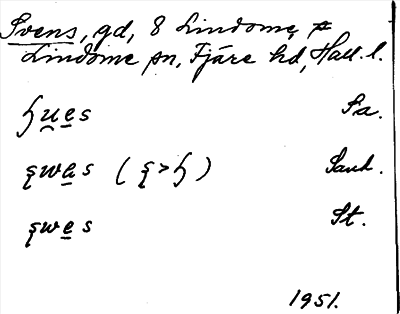 Svens, gd, 8 Lindome, 
Lindome sn, Fjäre hd, Hall. l.
ɧu̯e̲s Sa.
ȿwa̲s (ȿ>ɧ) Sand.
ȿwe̲s St.
1951.